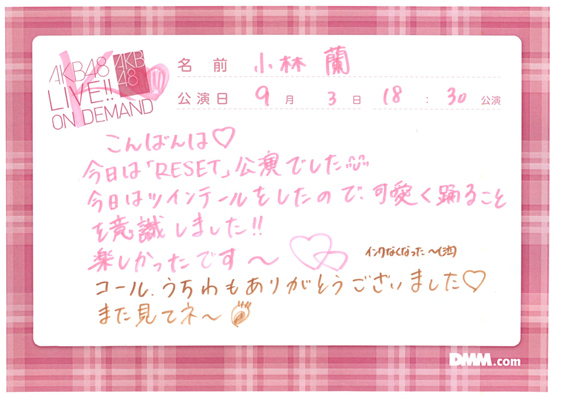 AKB48
LIVE!!
ON DEMAND
AKB
48
名前 小林 蘭
公演日 9月 3日 18:30 公演
こんばんは♡
今日は「RESET」公演でした
今日はツインテールをしたので、可愛く踊ること
を意識しました!!
楽しかったです〜
インクなくなった〜(泣)
コール、うちわもありがとうございました♡
また見てネ〜
DMM.com